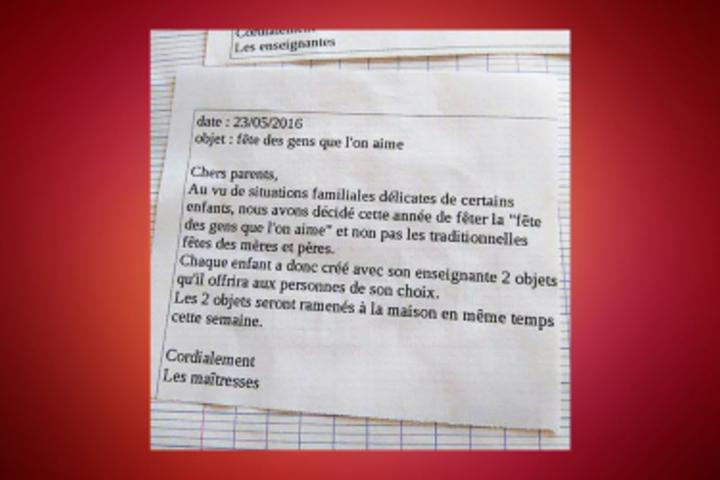 Cordialement
Les enseignantes
date : 23/05/2016
objet : fête des gens que l'on aime
Chers parents,
Au vu de situations familiales délicates de certains
enfants, nous avons décidé cette année de fêter la "fête
des gens que l'on aime" et non pas les traditionnelles
fêtes des mères et pères.
Chaque enfant a donc créé avec son enseignante 2 objets
qu'il offrira aux personnes de son choix.
Les 2 objets seront ramenés à la maison en même temps
cette semaine.
Cordialement
Les maîtresses